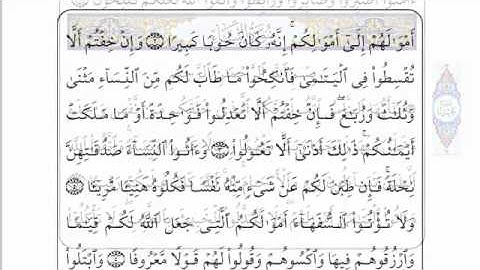 أَمْوَٰلَهُمْ إِلَىٰٓ أَمْوَٰلِكُمْ ۚ إِنَّهُۥ كَانَ حُوبًا كَبِيرًا ۝٢ وَإِنْ خِفْتُمْ أَلَّا
تُقْسِطُوا۟ فِى ٱلْيَتَٰمَىٰ فَٱنكِحُوا۟ مَا طَابَ لَكُم مِّنَ ٱلنِّسَآءِ مَثْنَىٰ
وَثُلَٰثَ وَرُبَٰعَ ۖ فَإِنْ خِفْتُمْ أَلَّا تَعْدِلُوا۟ فَوَٰحِدَةً أَوْ مَا مَلَكَتْ
أَيْمَٰنُكُمْ ۚ ذَٰلِكَ أَدْنَىٰٓ أَلَّا تَعُولُوا۟ ۝٣ وَءَاتُوا۟ ٱلنِّسَآءَ صَدُقَٰتِهِنَّ
نِحْلَةً ۚ فَإِن طِبْنَ لَكُمْ عَن شَىْءٍ مِّنْهُ نَفْسًا فَكُلُوهُ هَنِيٓـًٔا مَّرِيٓـًٔا ۝٤
وَلَا تُؤْتُوا۟ ٱلسُّفَهَآءَ أَمْوَٰلَكُمُ ٱلَّتِى جَعَلَ ٱللَّهُ لَكُمْ قِيَٰمًا
وَٱرْزُقُوهُمْ فِيهَا وَٱكْسُوهُمْ وَقُولُوا۟ لَهُمْ قَوْلًا مَّعْرُوفًا ۝٥ وَٱبْتَلُوا۟